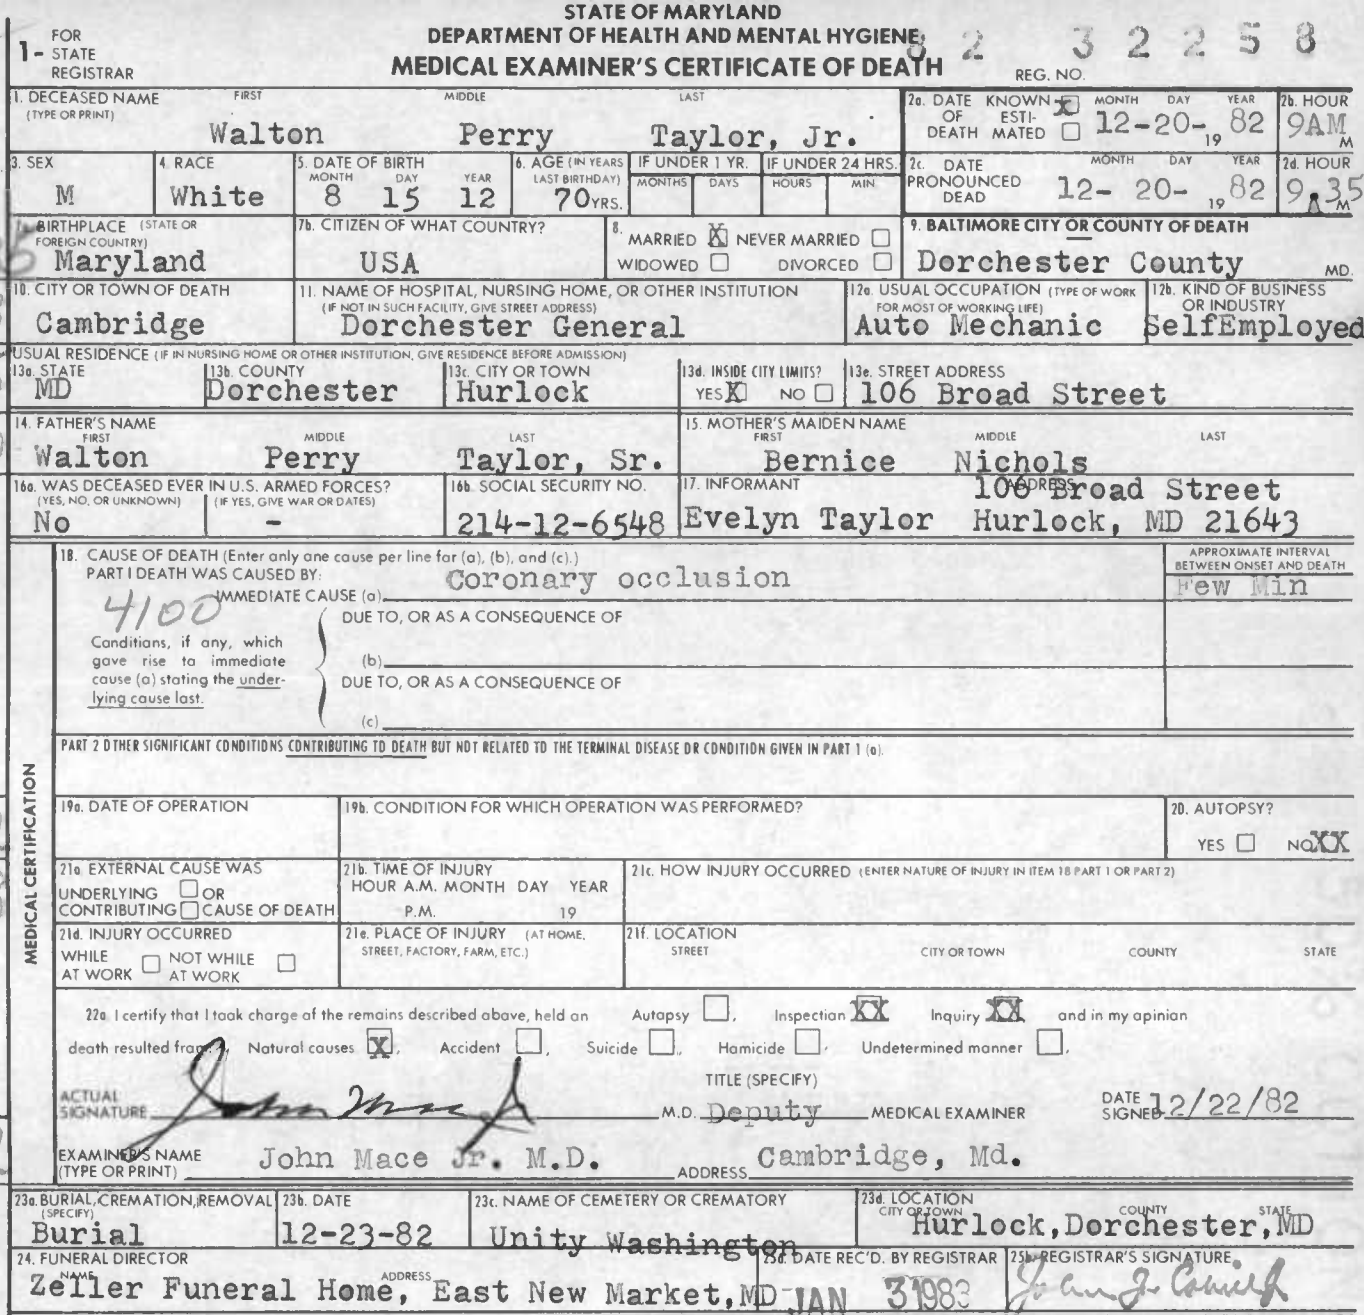 STATE OF MARYLAND
DEPARTMENT OF HEALTH AND MENTAL HYGIENE
MEDICAL EXAMINER'S CERTIFICATE OF DEATH
1- FOR STATE REGISTRAR
REG. NO. 82 32258
1. DECEASED NAME (TYPE OR PRINT) FIRST MIDDLE LAST
Walton Perry Taylor, Jr.
2a. DATE OF DEATH KNOWN X ESTIMATED MONTH DAY YEAR 12-20-1982
2b. HOUR 9AM M
3. SEX M
4. RACE White
5. DATE OF BIRTH MONTH DAY YEAR 8 15 12
6. AGE (IN YEARS LAST BIRTHDAY) 70 YRS.
IF UNDER 1 YR. MONTHS DAYS
IF UNDER 24 HRS. HOURS MIN
2c. DATE PRONOUNCED DEAD MONTH DAY YEAR 12- 20- 1982
2d. HOUR 9.35 A M
BIRTHPLACE (STATE OR FOREIGN COUNTRY) Maryland
7b. CITIZEN OF WHAT COUNTRY? USA
8. MARRIED X NEVER MARRIED
WIDOWED DIVORCED
9. BALTIMORE CITY OR COUNTY OF DEATH
Dorchester County MD.
10. CITY OR TOWN OF DEATH Cambridge
11. NAME OF HOSPITAL, NURSING HOME, OR OTHER INSTITUTION
(IF NOT IN SUCH FACILITY, GIVE STREET ADDRESS)
Dorchester General
12a. USUAL OCCUPATION (TYPE OF WORK FOR MOST OF WORKING LIFE)
Auto Mechanic
12b. KIND OF BUSINESS OR INDUSTRY
SelfEmployed
USUAL RESIDENCE (IF IN NURSING HOME OR OTHER INSTITUTION, GIVE RESIDENCE BEFORE ADMISSION)
13a. STATE MD
13b. COUNTY Dorchester
13c. CITY OR TOWN Hurlock
13d. INSIDE CITY LIMITS? YES X NO
13e. STREET ADDRESS 106 Broad Street
14. FATHER'S NAME FIRST MIDDLE LAST
Walton Perry Taylor, Sr.
15. MOTHER'S MAIDEN NAME FIRST MIDDLE LAST
Bernice Nichols
16a. WAS DECEASED EVER IN U.S. ARMED FORCES?
(YES, NO, OR UNKNOWN) (IF YES, GIVE WAR OR DATES)
No -
16b. SOCIAL SECURITY NO. 214-12-6548
17. INFORMANT ADDRESS
106 Broad Street
Evelyn Taylor Hurlock, MD 21643
MEDICAL CERTIFICATION
18. CAUSE OF DEATH (Enter only one cause per line for (a), (b), and (c).)
PART I DEATH WAS CAUSED BY:
IMMEDIATE CAUSE (a) Coronary occlusion
APPROXIMATE INTERVAL BETWEEN ONSET AND DEATH
Few Min
4100
DUE TO, OR AS A CONSEQUENCE OF
Conditions, if any, which gave rise to immediate cause (a) stating the underlying cause last.
(b)
DUE TO, OR AS A CONSEQUENCE OF
(c)
PART 2 OTHER SIGNIFICANT CONDITIONS CONTRIBUTING TO DEATH BUT NOT RELATED TO THE TERMINAL DISEASE OR CONDITION GIVEN IN PART 1 (a).
19a. DATE OF OPERATION
19b. CONDITION FOR WHICH OPERATION WAS PERFORMED?
20. AUTOPSY?
YES NO XX
21a EXTERNAL CAUSE WAS
UNDERLYING OR
CONTRIBUTING CAUSE OF DEATH
21b. TIME OF INJURY
HOUR A.M. MONTH DAY YEAR
P.M. 19
21c. HOW INJURY OCCURRED (ENTER NATURE OF INJURY IN ITEM 18 PART 1 OR PART 2)
21d. INJURY OCCURRED
WHILE AT WORK NOT WHILE AT WORK
21e. PLACE OF INJURY (AT HOME, STREET, FACTORY, FARM, ETC.)
21f. LOCATION
STREET CITY OR TOWN COUNTY STATE
22a I certify that I took charge of the remains described above, held an Autopsy , Inspection XX Inquiry XX and in my opinion
death resulted from: Natural causes X, Accident , Suicide , Homicide , Undetermined manner .
ACTUAL SIGNATURE John Mace Jr M.D.
TITLE (SPECIFY) Deputy MEDICAL EXAMINER
DATE SIGNED 12/22/82
EXAMINER'S NAME (TYPE OR PRINT) John Mace Jr. M.D.
ADDRESS Cambridge, Md.
23a. BURIAL, CREMATION, REMOVAL (SPECIFY) Burial
23b. DATE 12-23-82
23c. NAME OF CEMETERY OR CREMATORY
Unity Washington
23d. LOCATION CITY OR TOWN COUNTY STATE
Hurlock, Dorchester, MD
24. FUNERAL DIRECTOR NAME ADDRESS
Zeller Funeral Home, East New Market, MD
25a. DATE REC'D. BY REGISTRAR
JAN 3 1983
25b. REGISTRAR'S SIGNATURE